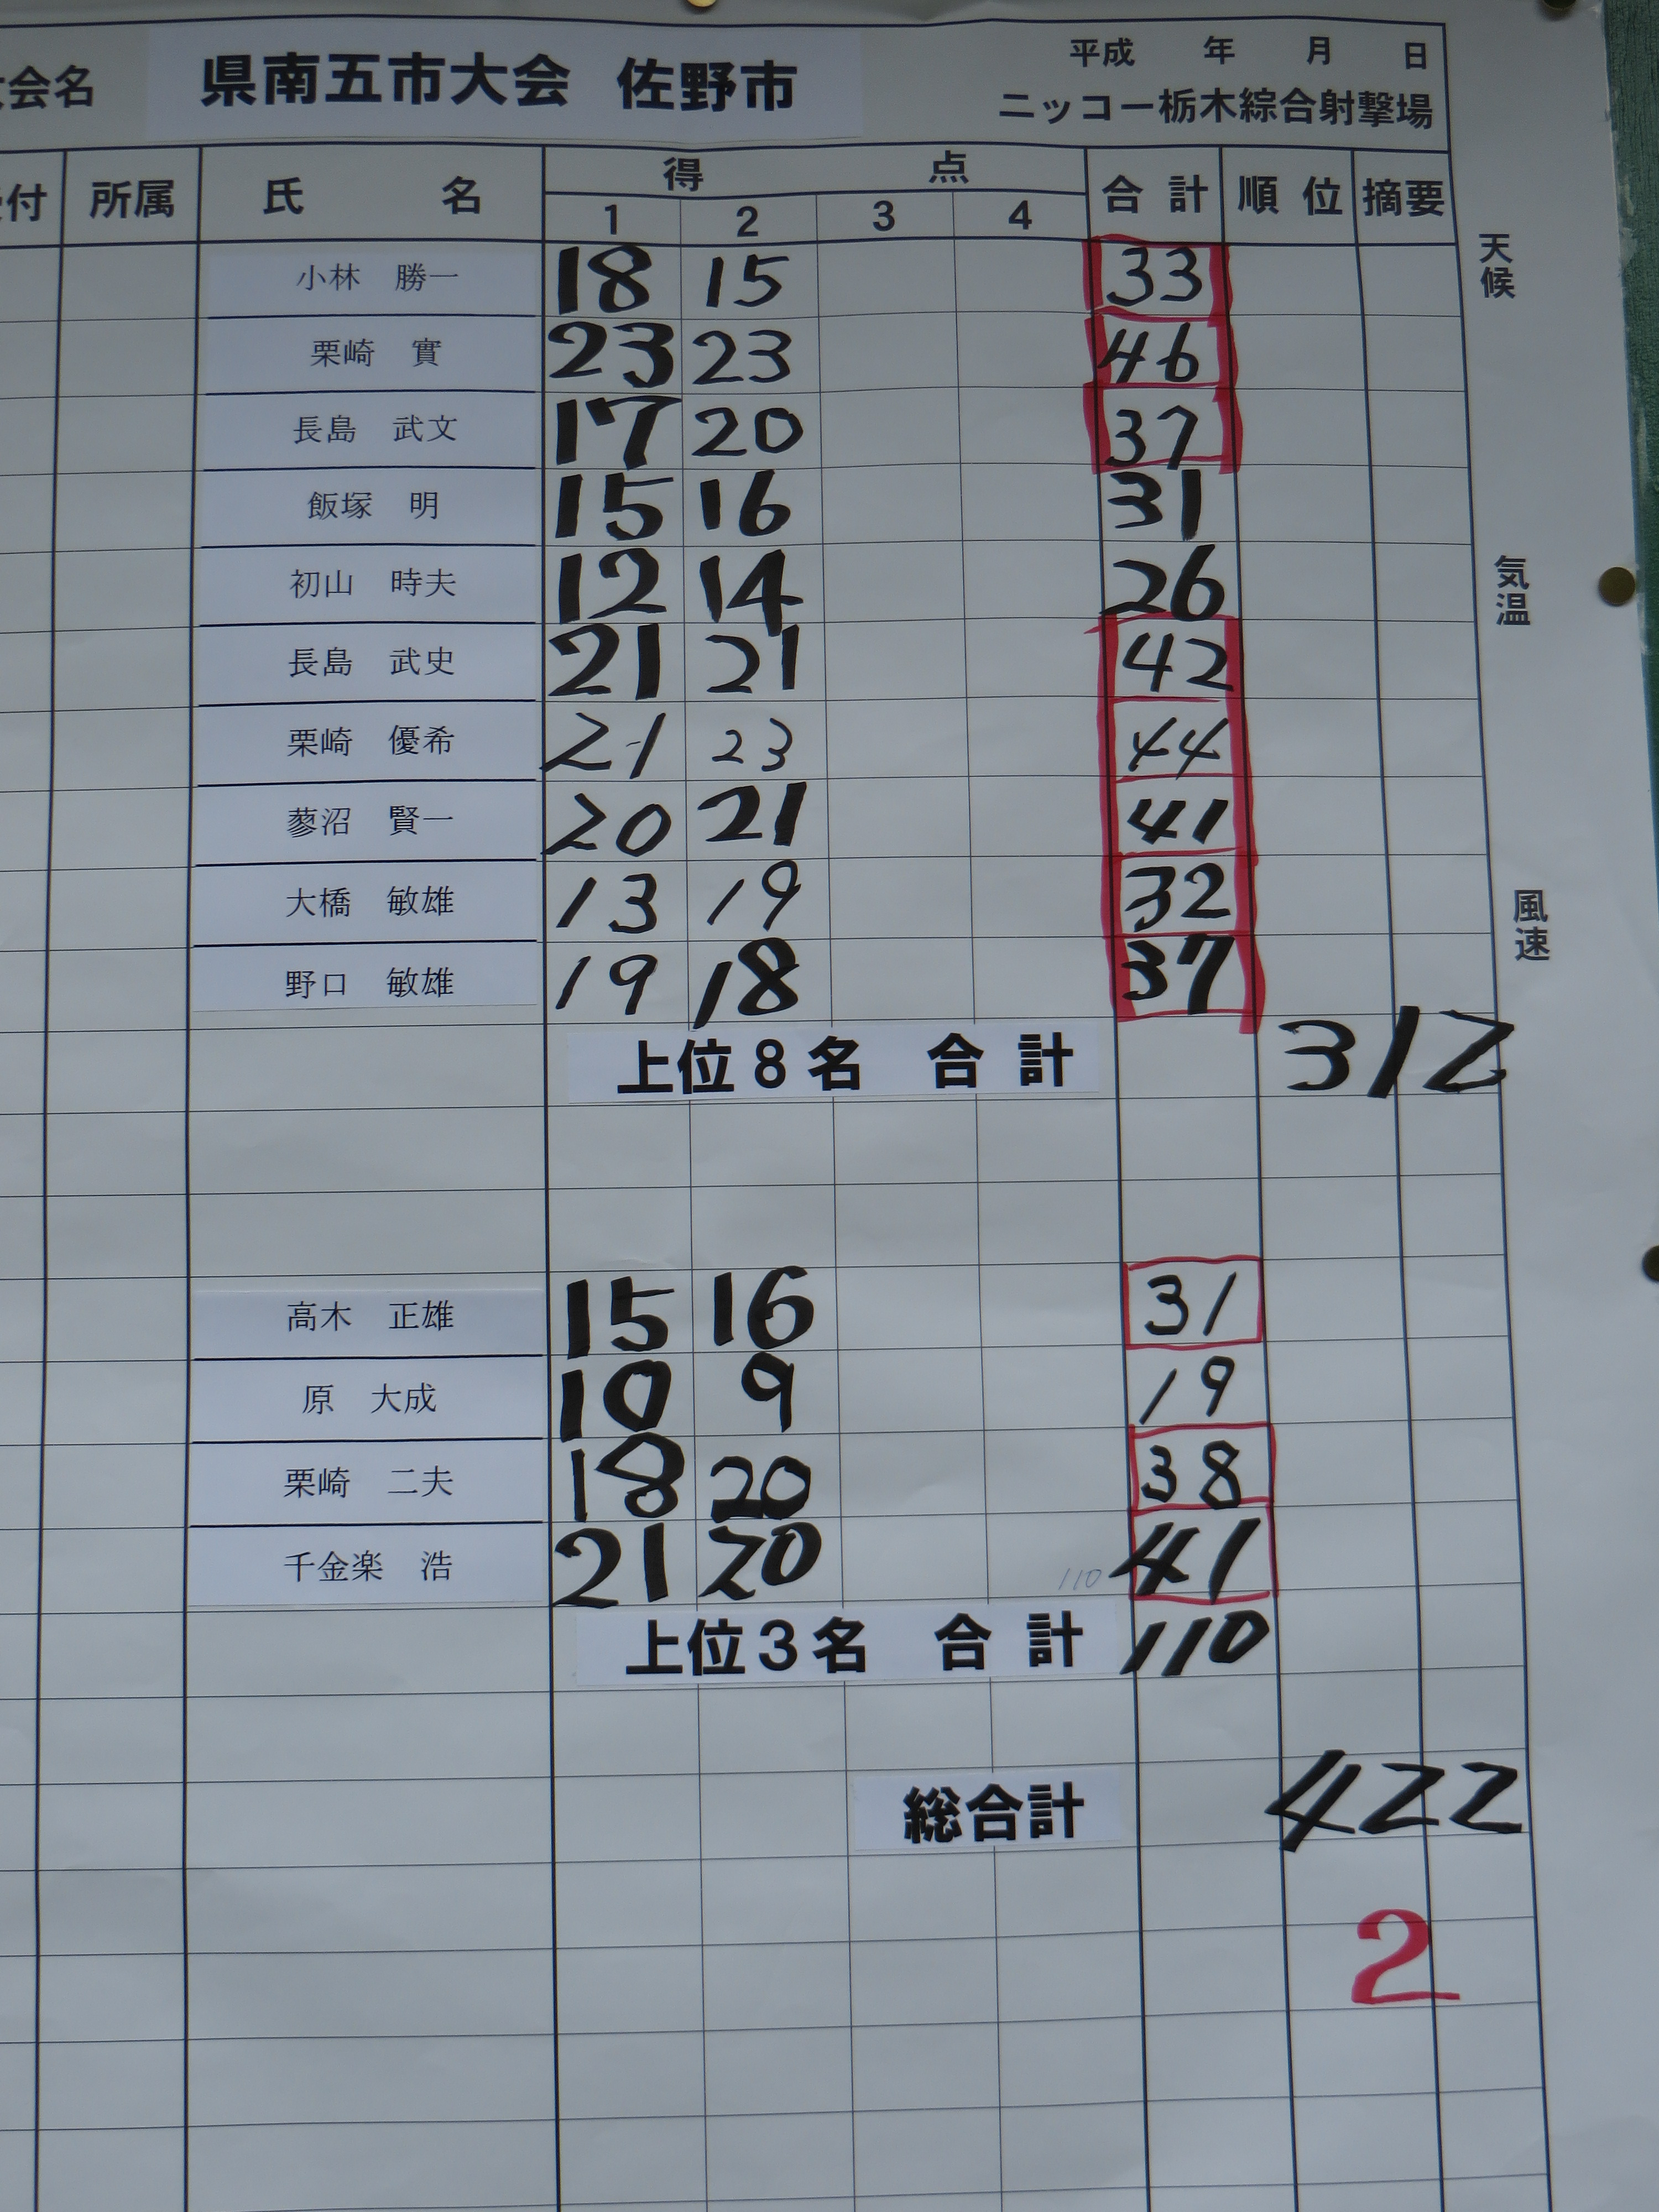 会名 県南五市大会 佐野市 平成 年 月 日
ニッコー栃木綜合射撃場
付 所属 氏 名 得 点 合計 順位 摘要
1 2 3 4
天候
小林 勝一 18 15 33
栗崎 實 23 23 46
長島 武文 17 20 37
飯塚 明 15 16 31
気温
初山 時夫 12 14 26
長島 武史 21 21 42
栗崎 優希 21 23 44
蓼沼 賢一 20 21 41
風速
大橋 敏雄 13 19 32
野口 敏雄 19 18 37
上位8名 合計 312
高木 正雄 15 16 31
原 大成 10 9 19
栗崎 二夫 18 20 38
千金楽 浩 21 20 110 41
上位3名 合計 110
総合計 422
2